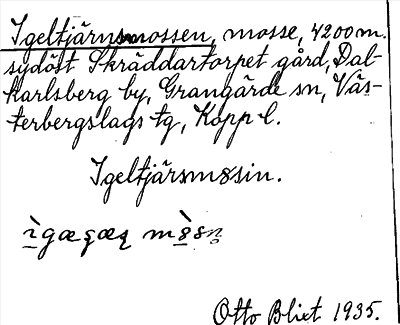 Igeltjärnsmossen, mosse, 4200 m.
sydöst Skräddartorpet gård, Dal-
karlsberg by, Grangärde sn, Väs-
terbergslags tg, Kopp l.
Igeltjärsmosin.
Otto Blixt 1935.